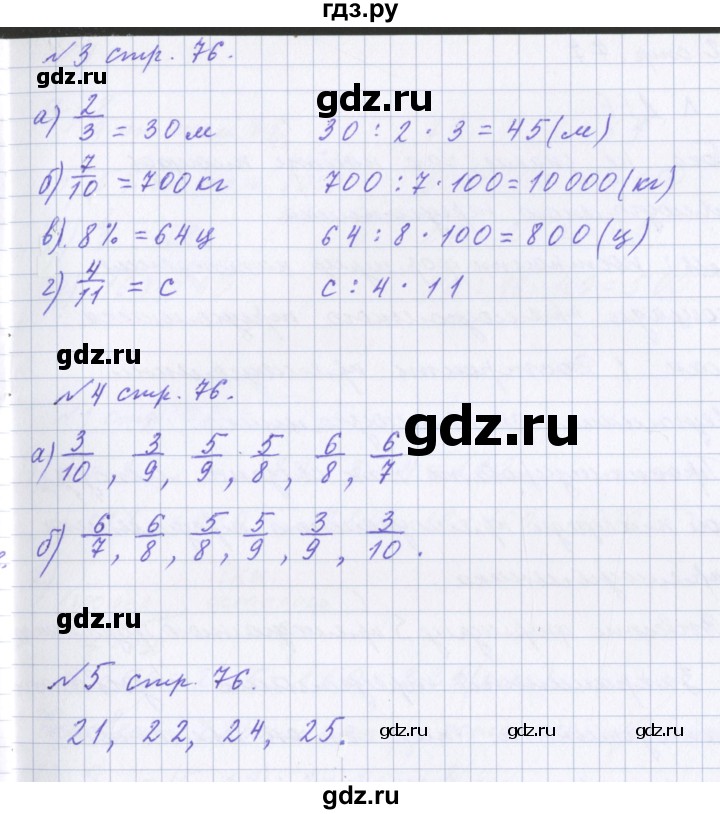 гдз.ру
№3 стр. 76.
gdz.ru
gdz.ru
а) 2/3 = 30м 30 : 2 · 3 = 45(м)
б) 7/10 = 700кг 700 : 7 · 100 = 10000(кг)
в). 8% = 64ц 64 : 8 · 100 = 800(ц)
г) 4/11 = с с : 4 · 11
gdz.ru
№4 стр. 76.
gdz.ru
а) 3/10, 3/9, 5/9, 5/8, 6/8, 6/7
б) 6/7, 6/8, 5/8, 5/9, 3/9, 3/10.
gdz.ru
№5 стр. 76.
21, 22, 24, 25.
gdz.ru gdz.ru gdz.ru
gdz.ru